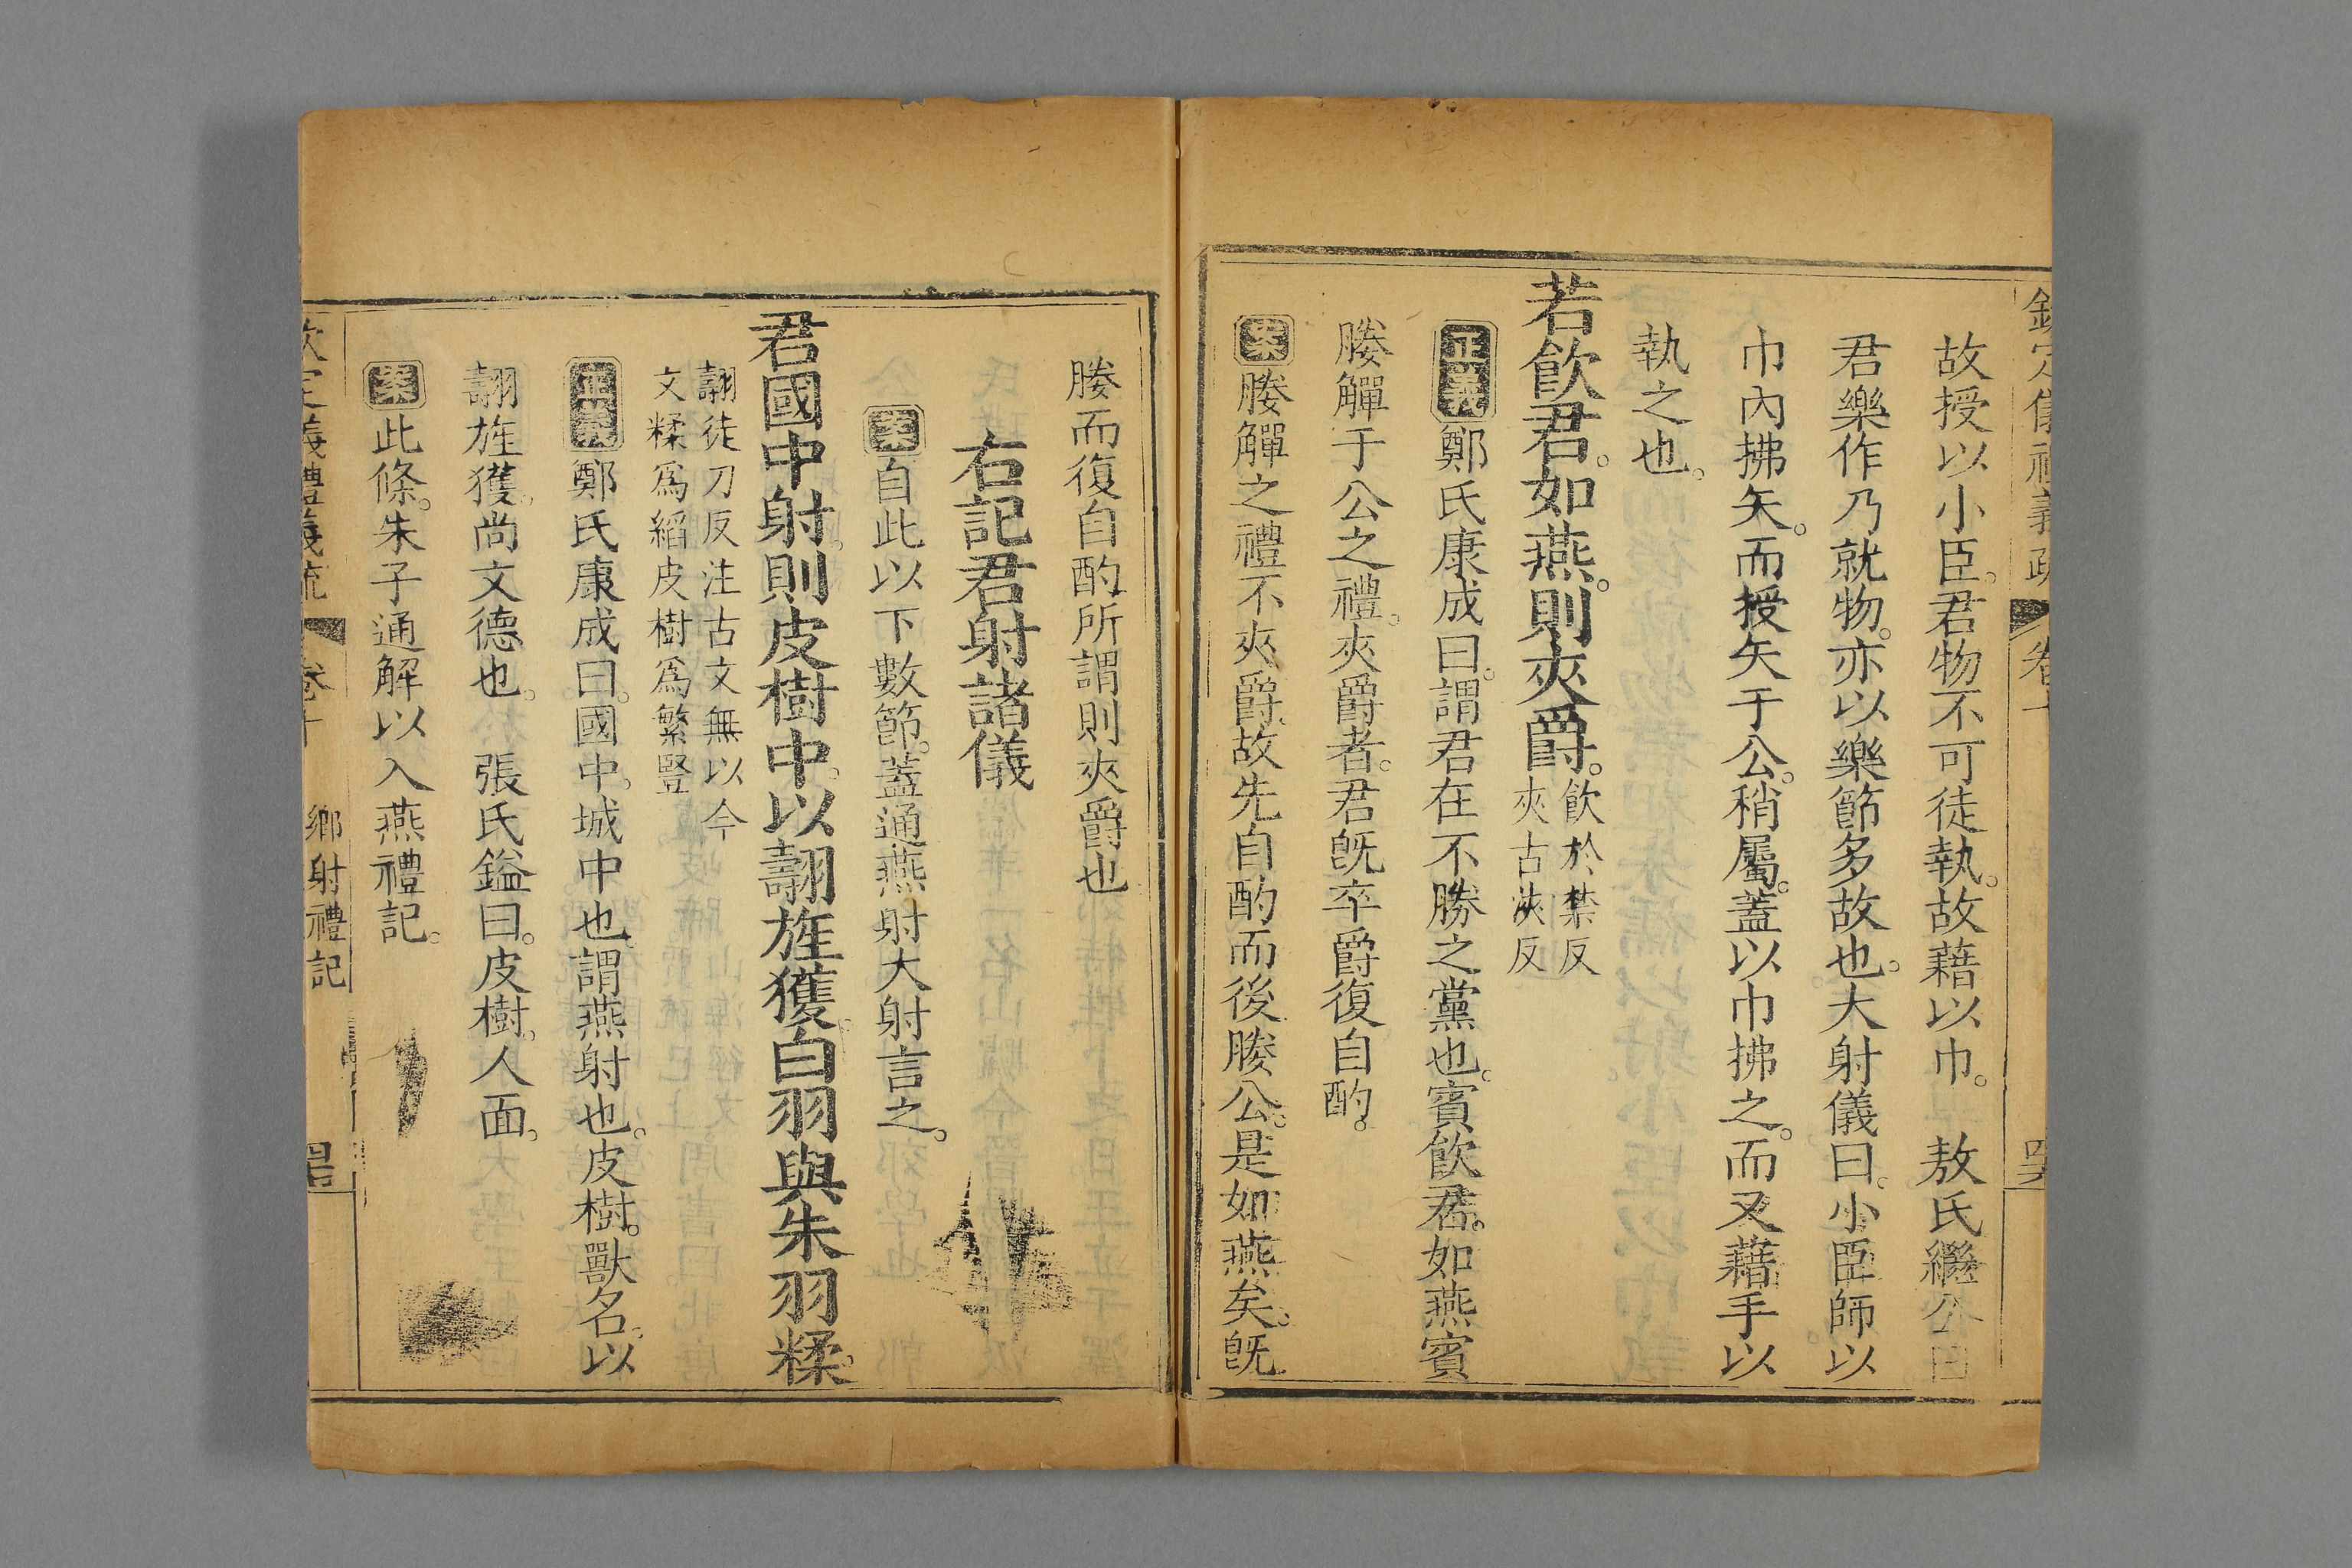 欽定儀禮義疏 卷十
故授以小臣。君物不可徒執。故藉以巾。 敖氏繼公曰
君樂作乃就物。亦以樂節多故也。大射儀曰。小臣師以
巾內拂矢。而授矢于公。稍屬。蓋以巾拂之。而又藉手以
執之也。
若飲君。如燕。則夾爵。飲於禁反
夾古洽反
正義鄭氏康成曰。謂君在不勝之黨也。賓飲君。如燕賓
媵觶于公之禮。夾爵者。君既卒爵復自酌。
案媵觶之禮不夾爵。故先自酌而後媵公。是如燕矣。既
媵而復自酌。所謂則夾爵也
右記君射諸儀
案自此以下數節。蓋通燕射大射言之。
君國中射。則皮樹中。以翿旌獲。白羽與朱羽糅。
翿徒刀反注古文無以今
文糅爲縚皮樹爲繁豎
正義鄭氏康成曰。國中。城中也。謂燕射也。皮樹。獸名。以
翿旌獲。尚文德也。 張氏鎰曰。皮樹。人面。
案此條。朱子通解以入燕禮記。
欽定義禮義疏 卷十 鄉射禮記